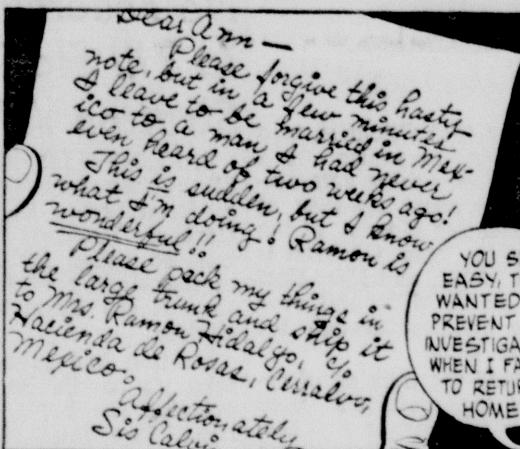 Dear Ann —
Please forgive this hasty
note, but in a few minutes
I leave to be married in Mex-
ico to a man I had never
even heard of two weeks ago!
This is sudden, but I know
what I'm doing! Ramon is
wonderful!!
Please pack my things in
the large trunk and ship it
to Mrs. Ramon Hidalgo, c/o
Hacienda de Rosas, Cerralvo,
Mexico.
Affectionately
Sis
YOU
EASY,
WANTED
PREVENT
WHEN I
TO
HOME